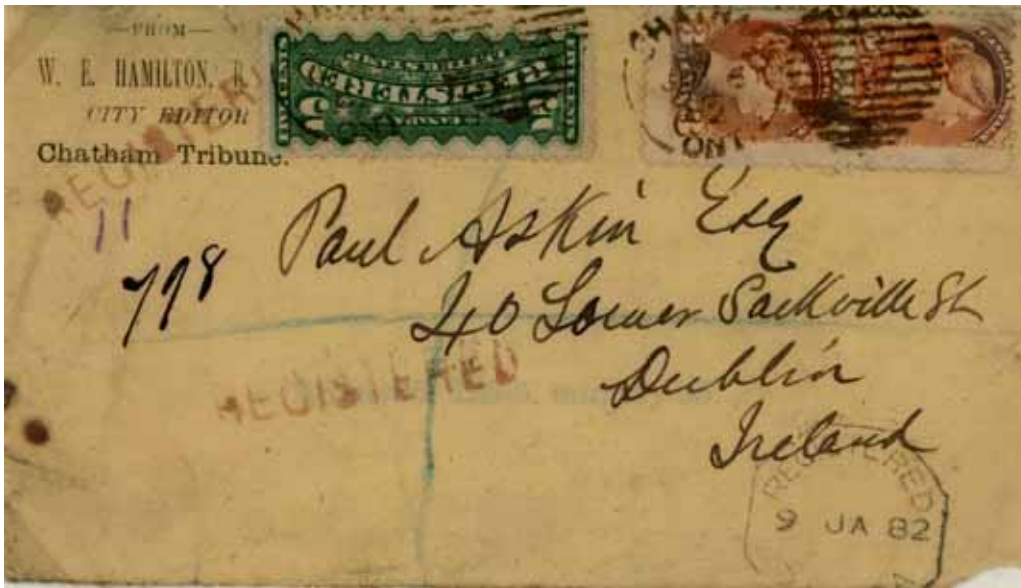 —FROM—
W. E. HAMILTON, B.
CITY EDITOR
Chatham Tribune.
REGISTERED
11
798
FIVE CENTS
REGISTERED
5
5
ONT
Paul Askin Esq
40 Lower Sackville St
Dublin
Ireland
REGISTERED
REGISTERED
9 JA 82